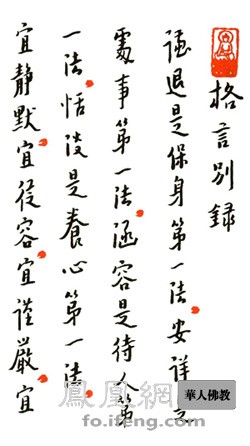 格言別録
謙退是保身第一法安詳是
處事第一法涵容是待人第
一法恬淡是養心第一法
宜静默宜從容宜謹嚴宜
鳳凰網
fo.ifeng.com
華人佛教